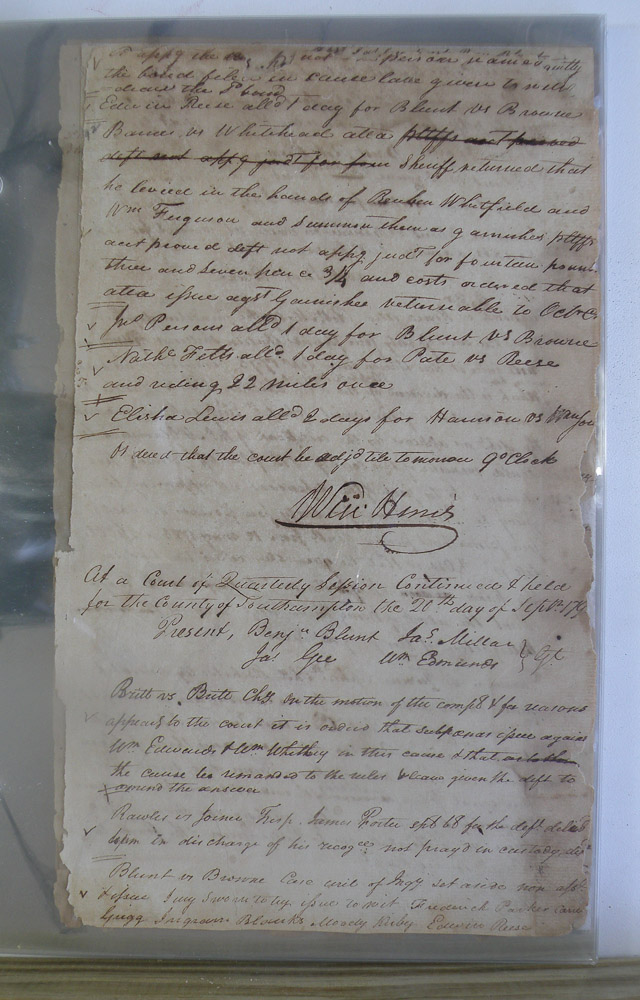 the bond filed in cause leave given to with
draw the sd bond
Edwin Reese alld 1 day for Blunt vs Browne
Barnes vs Whitehead atta pltffs acct proved
deft not appg judt for four Sheriff returned that
he levied in the hands of Reuben Whitfield and
Wm Ferguson and summon them as garnishes pltffs
acct proved deft not appg judt for fourteen pounds
three and seven pence 3/4 and costs ordered that
atta issue agst Garnishee returnable to Octr Ct
Jno Persons alld 1 day for Blunt vs Browne
Nathl Fitts alld 1 day for Pate vs Reese
and riding 22 miles once
Elisha Lewis alld 2 days for Harrison vs
Ordered that the court be adjd till tomorrow 9 oClock
Will Hines
At a Court of Quarterly Session Continued & held
for the County of Southampton the 20th day of Septr 179
Present, Benjn Blunt Jas Millar
Jas Gee Wm Edmunds } Gt
Britt vs Britt Chy On the motion of the complt & for reasons
appeag to the court it is ordered that subpoenas issue against
Wm Edwards & Wm Whitney in this cause & that
the cause be remanded to the rules & leave given the deft to
amend the answer
Rawles vs Joiner Tresp. James Porter spl bl for the deft delivd
him in discharge of his recogce not prayd in custody
Blunt vs Browne Case writ of Inqy set aside non asst
& issue Jury sworn to try issue to wit Frederick Parker
Gregg Ingram Blanks Moody Kirby Edwin Reese